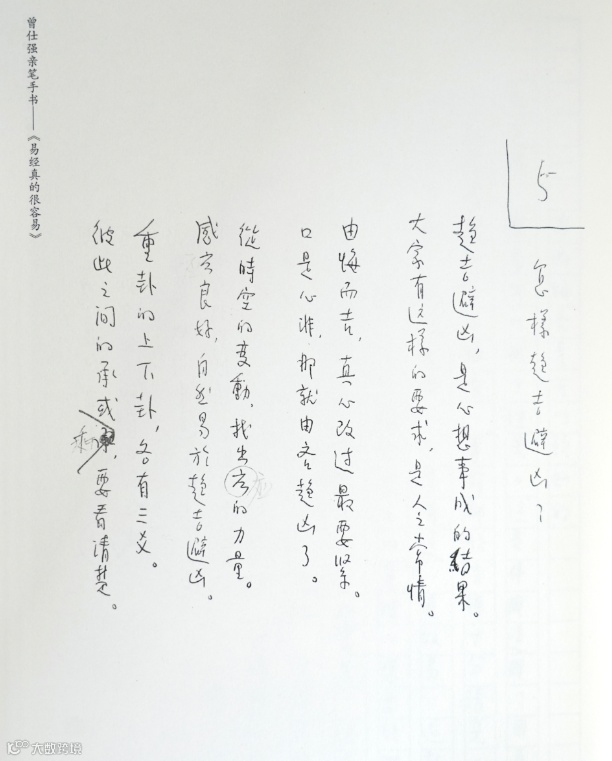 5
怎樣趨吉避凶？
趨吉避凶，是心想事成的結果。
大家有这樣的要求，是人之常情。
由悔而吉，真心改过最要紧。
口是心非，那就由吝趨凶了。
從時空的变動，找出应的力量。
应
感应良好，自然易於趨吉避凶。
重卦的上下卦，各有三爻。
彼此之间的承或乘，要看清楚。
曾仕强亲笔手书——《易经真的很容易》
大数跨境